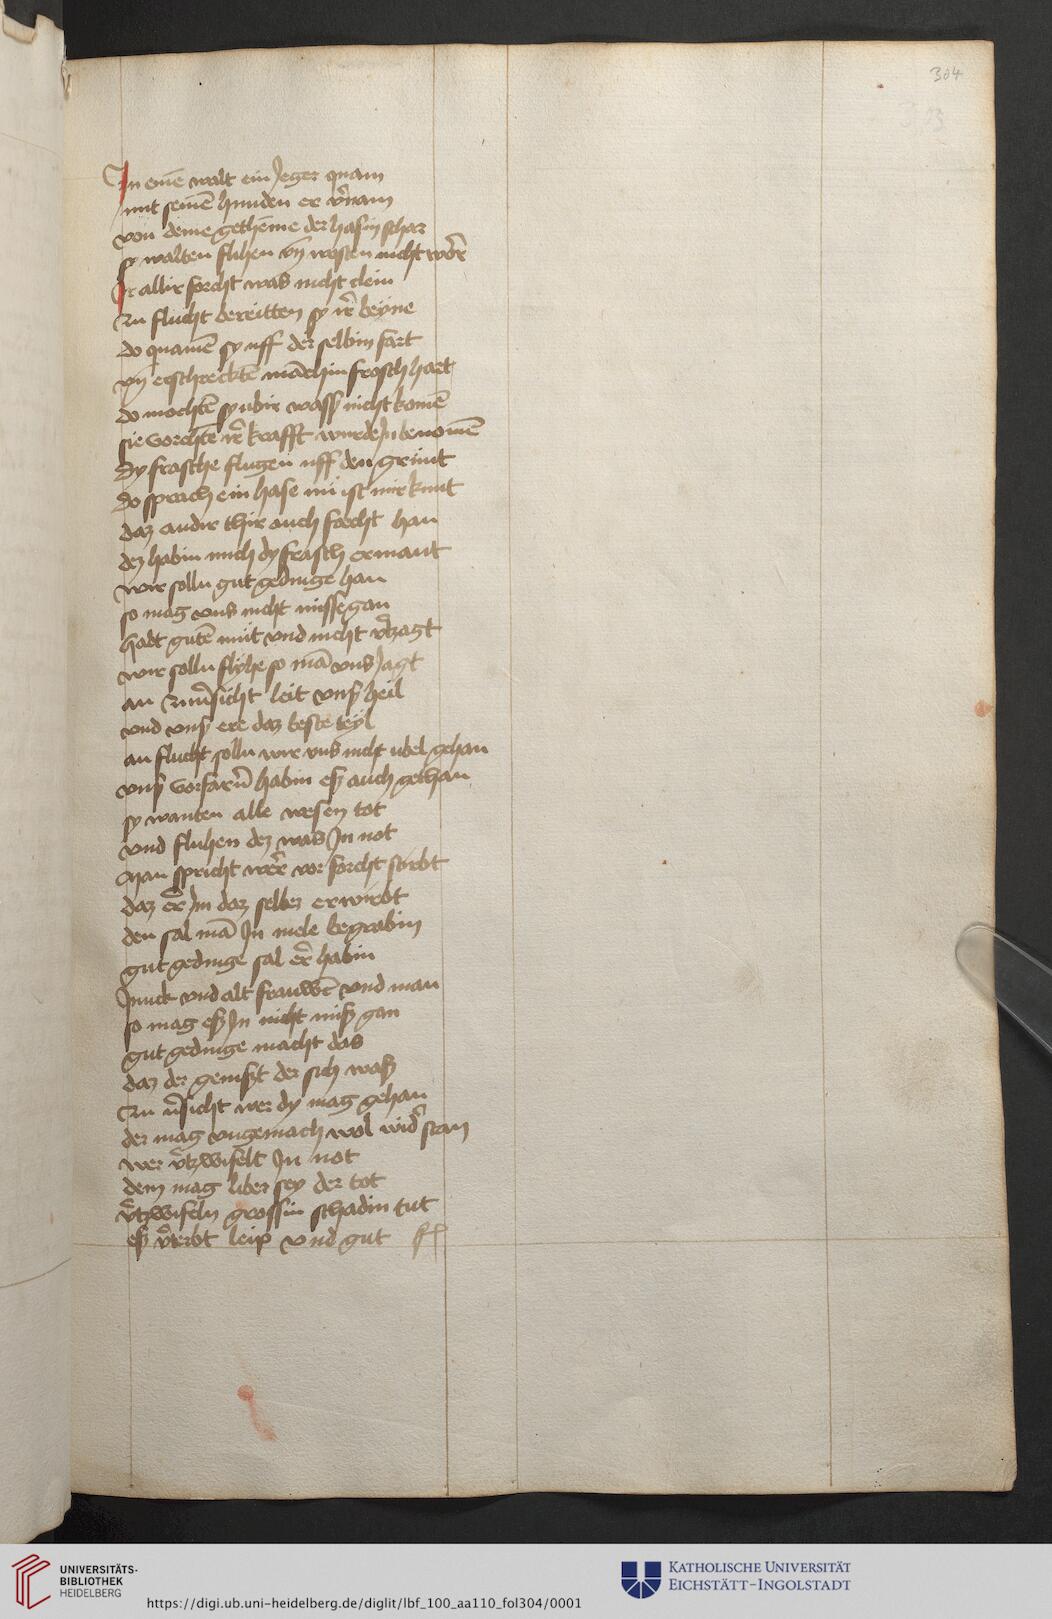 304
303
In eine͂ walt ein Jeger quam
mit seine͂ hunden er v͛nam
von deme gethem̄e der hasin schar
sy walten fluhen vn̄ westen nicht war͛
Ir allir forcht was nicht clein
Zu flucht bereitten sy ir͛ beyne
do quame͂ sy uff der selbin fart
vn̄ erschreckte͂ ma͂chin frosch hart
do mochte͂ sy ubir wass͛ nicht kome͂
sie vorchte͂ ir͛ krafft wurde Jn benome͂
Dy frosche flugen uff den grunt
do sprach ein hase nu ist mir kunt
daz andir thir auch forcht han
dez habin mich dy frosch ermant
wir solln gut gedinge han
so mag vns nicht missegan
habt gute͂ mut vnd nicht v͛tzagt
wir solln flyhe so ma͂ vns Jagt
an zuu͛sicht leit vns͛ heil
vnd vns͛ ere daz beste teyl
an flucht solln wir vns nicht ubel gehan
vns͛ vorfarn͛ habin es͛ auch gethan
sy wanten alle wesen tot
vnd fluhen dez was Jn not
Man spricht wer͛ vor forcht stirbt
daz er͛ Jm daz selber erwirbt
den sal ma͂ Jn mele begrabin
gut gedinge sal er͛ habin
Junck vnd alt frauwe͂ vnd man
so mag es͛ Jn nicht mis͛ gan
gut gedinge macht das
daz der genist der sich was͛
Zu v͛sicht wer dy mag gehan
der mag vngemach wol wid͛ stan
wer v͛tzwifelt Jn not
dem mag liber sey der tot
v͛tzwifeln grossin schadin tut
es͛ v͛terbt leip vnd gut
UNIVERSITÄTS-
BIBLIOTHEK
HEIDELBERG
https://digi.ub.uni-heidelberg.de/diglit/lbf_100_aa110_fol304/0001
KATHOLISCHE UNIVERSITÄT
EICHSTÄTT-INGOLSTADT